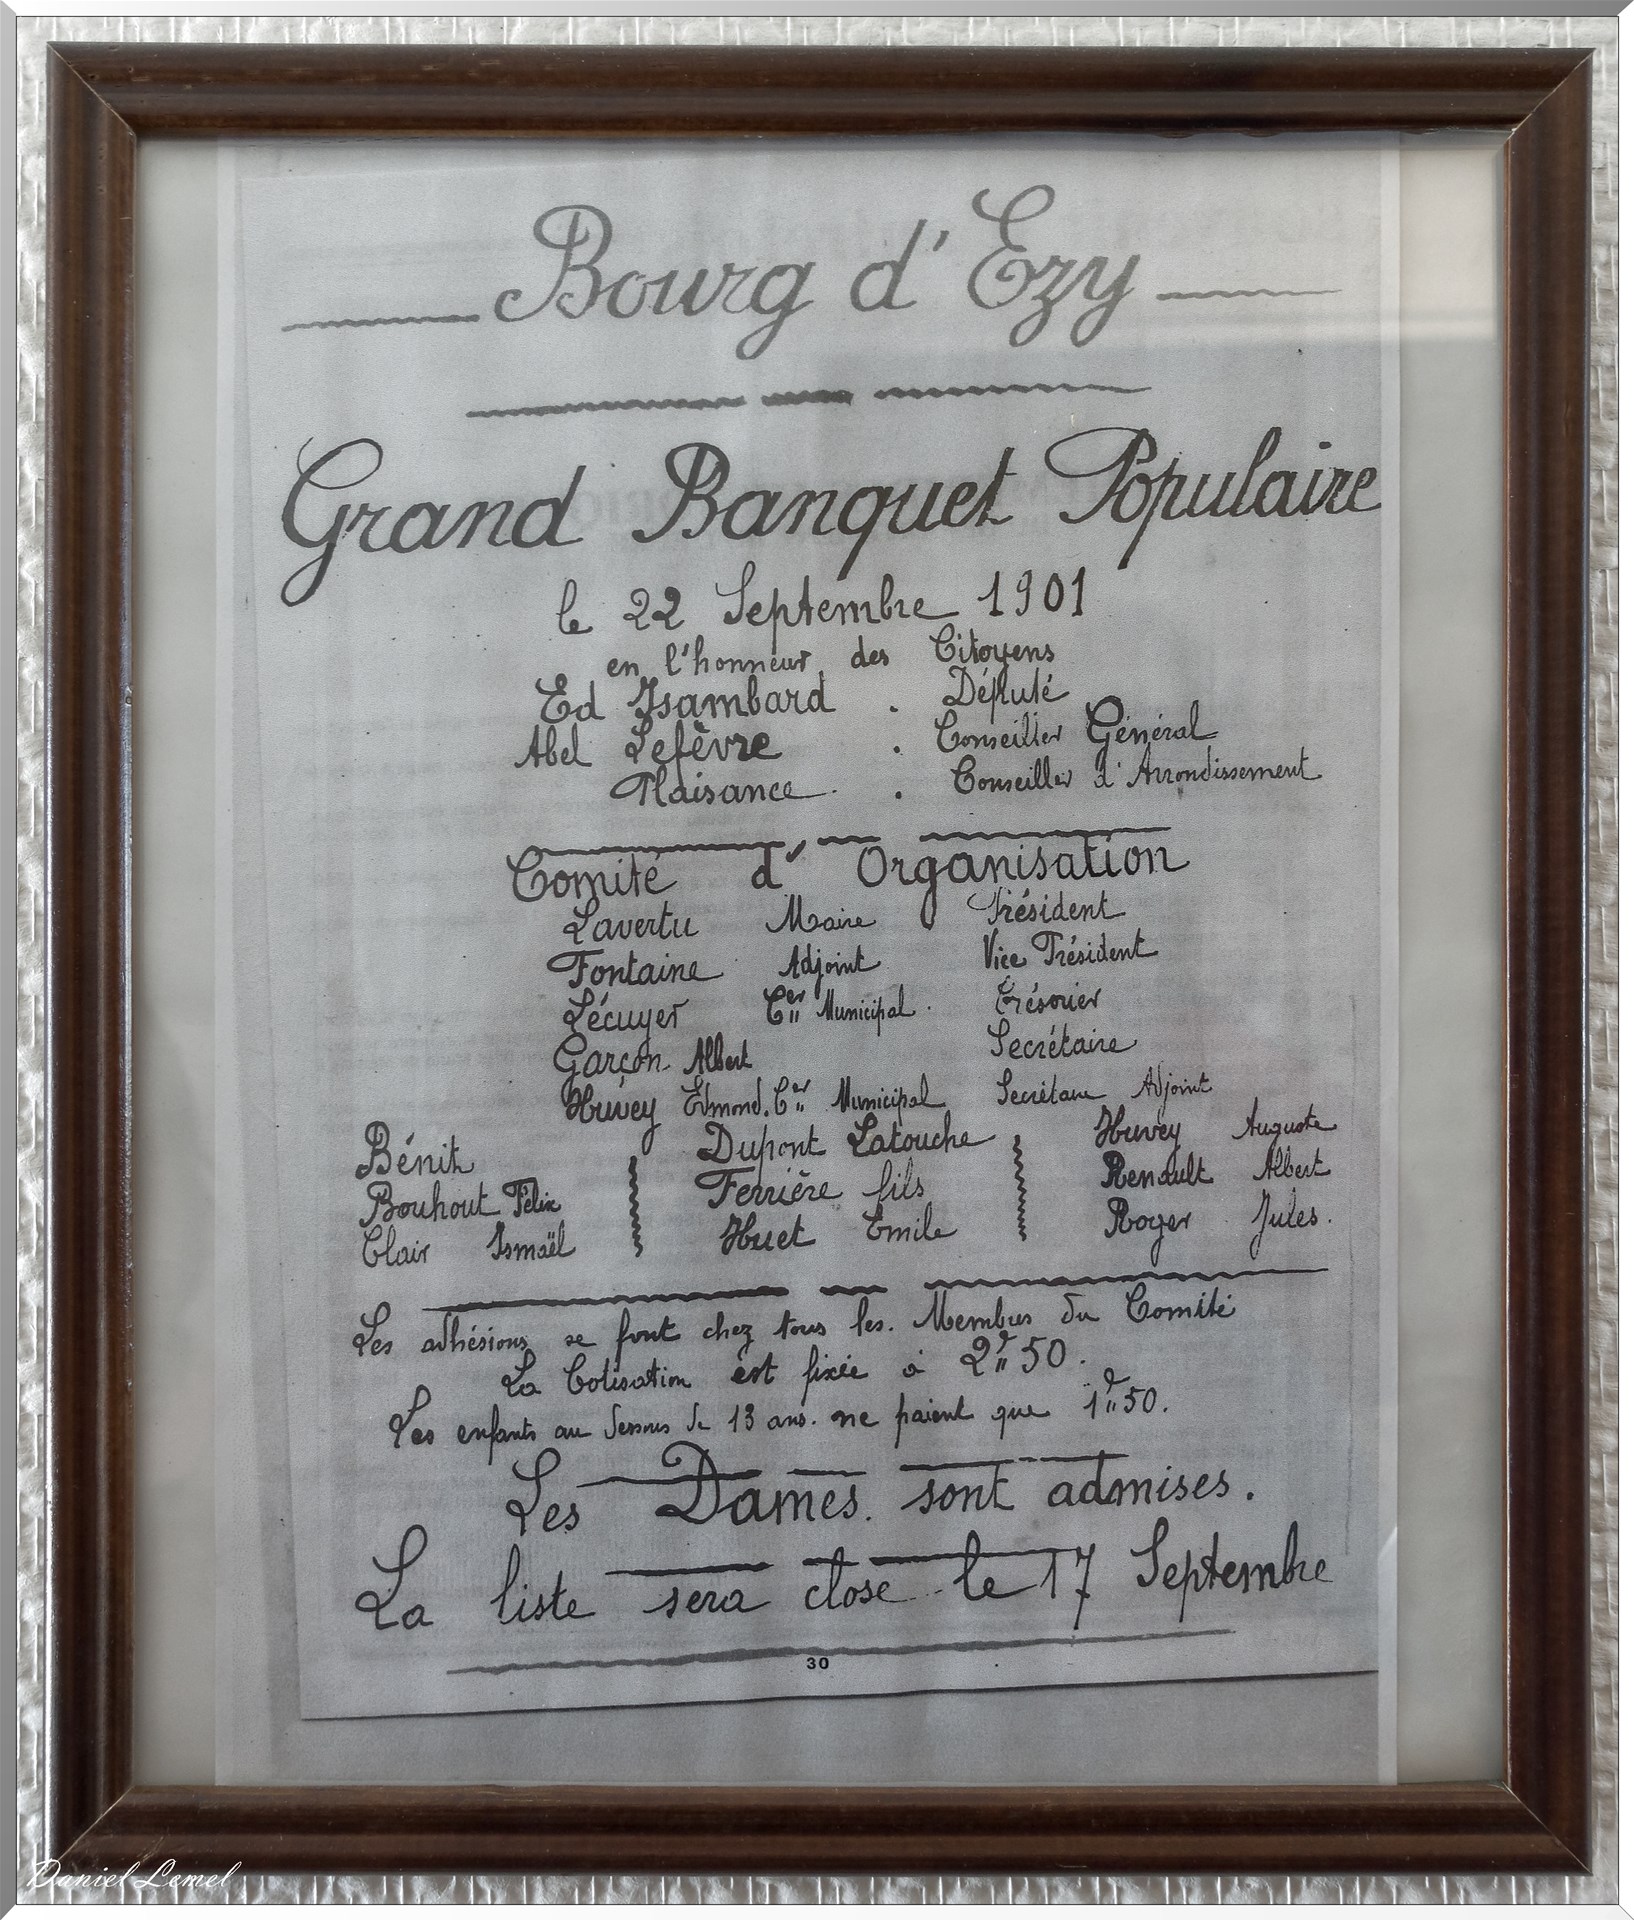 Bourg d'Ezy
Grand Banquet Populaire
le 22 Septembre 1901
en l'honneur des Citoyens
Ed Isambard . Député
Abel Lefèvre . Conseiller Général
Plaisance . Conseiller d'Arrondissement
Comité d'Organisation
Lavertu Maire Président
Fontaine Adjoint Vice Président
Lécuyer Cer Municipal. Trésorier
Garçon Albert Secrétaire
Huvey Edmond. Cer Municipal Secrétaire Adjoint
Bénit Dupont Latouche Huvey Auguste
Bouhout Félix Ferrière fils Renault Albert
Clair Ismaël Huet Emile Roger Jules.
Les adhésions se font chez tous les. Membres du Comité
La Cotisation est fixée à 2f50.
Les enfants au dessous de 13 ans. ne paient que 1f50.
Les Dames. sont admises.
La liste sera close le 17 Septembre
30
Daniel Lemel